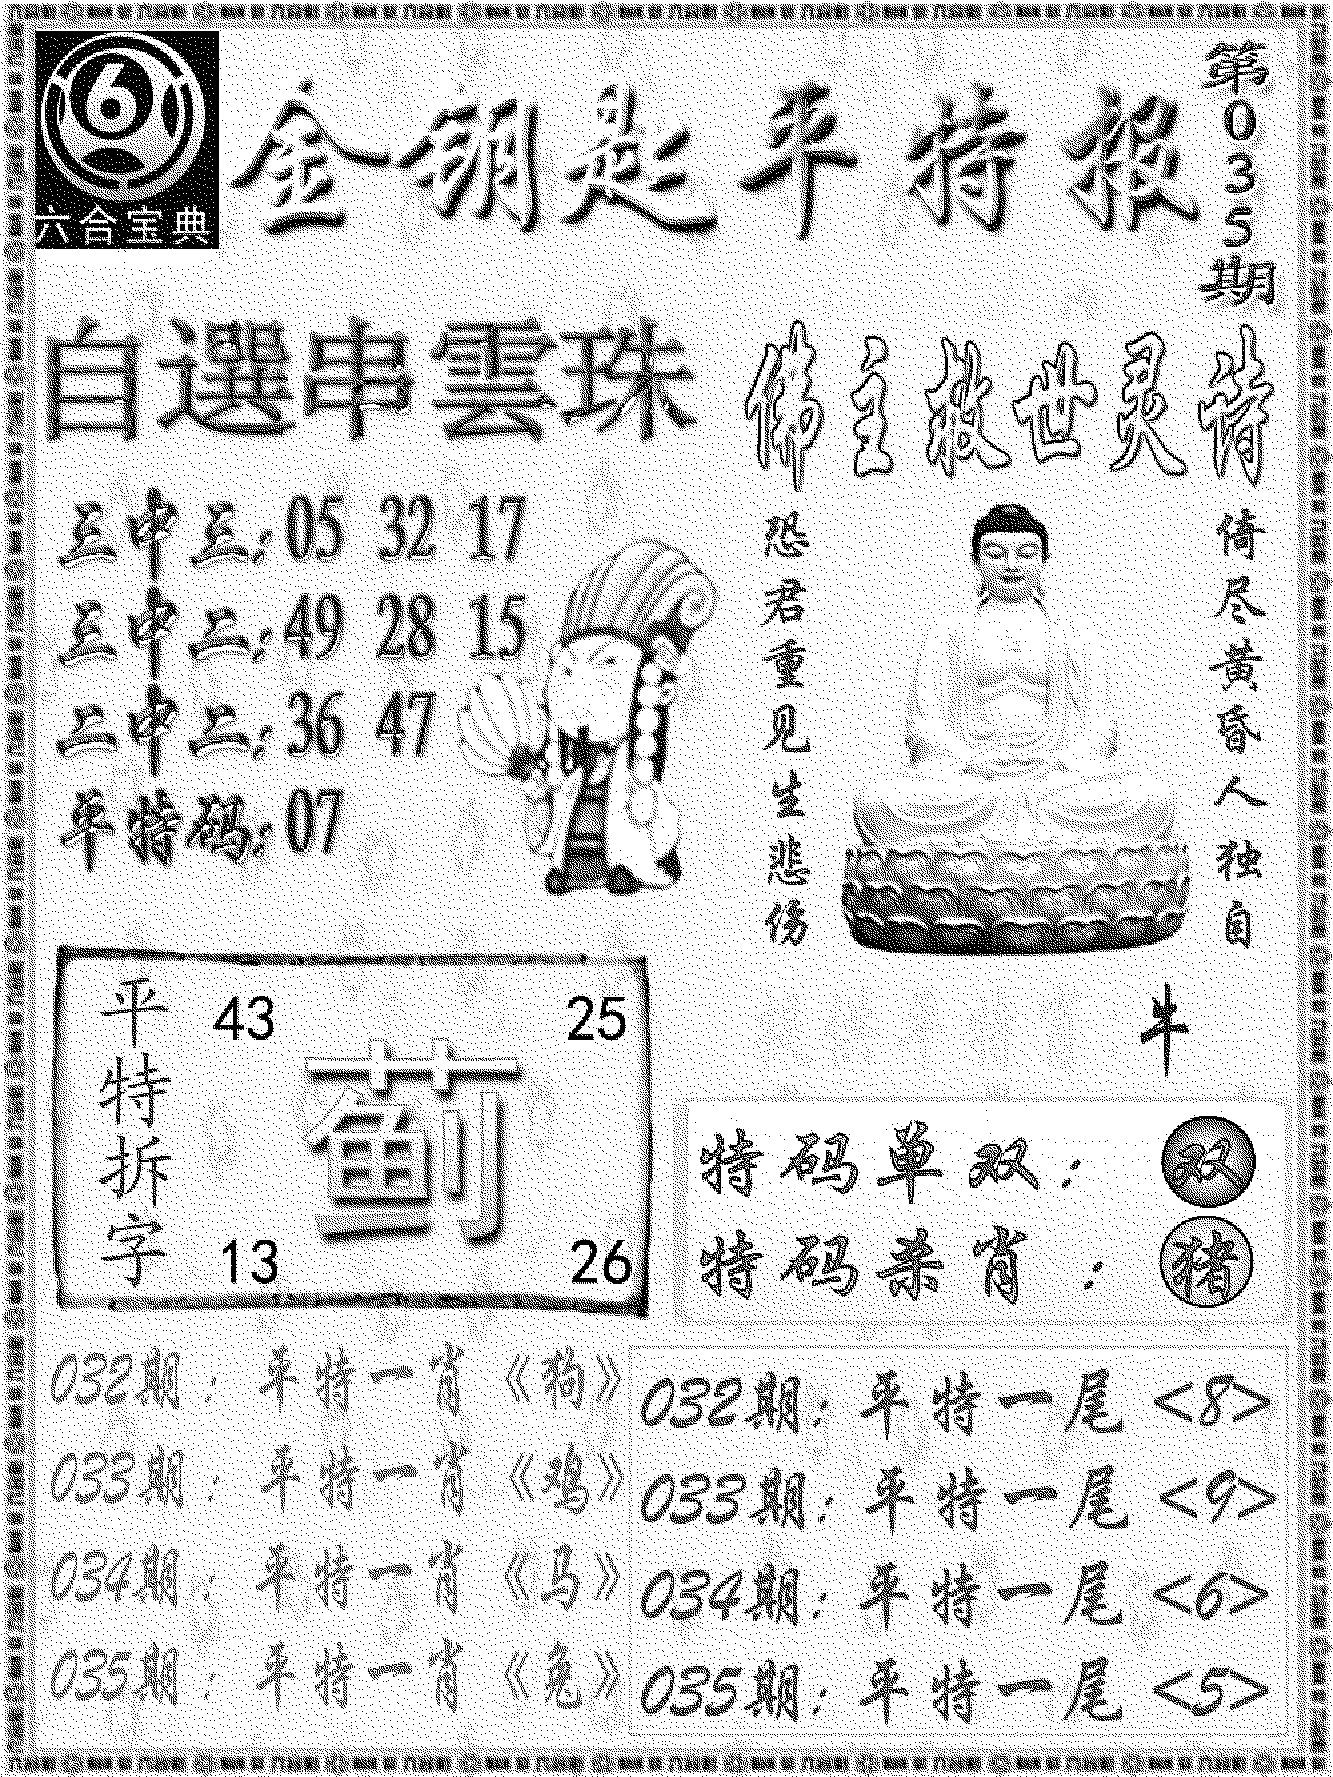 6
六合宝典
金钥匙平特报
第035期
自選串雲珠
三中三:05 32 17
三中二:49 28 15
二中二:36 47
平特码:07
佛主救世灵诗
倚尽黄昏人独自
恐君重见生悲伤
牛
平特拆字
43 25
蓟
13 26
特码单双:双
特码杀肖:猪
032期:平特一肖《狗》
033期:平特一肖《鸡》
034期:平特一肖《马》
035期:平特一肖《兔》
032期:平特一尾<8>
033期:平特一尾<9>
034期:平特一尾<6>
035期:平特一尾<5>